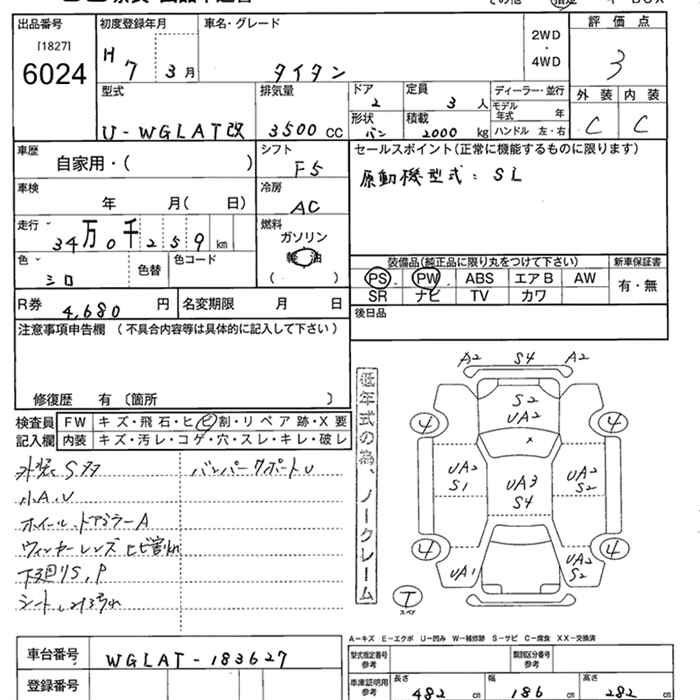 出品番号 初度登録年月 車名・グレード 評価点
[1827]
6024
H 7年 3月 タイタン 2WD・4WD 3
型式 排気量 ドア 定員 ディーラー・並行 外装 内装
U-WGLAT改 3500 CC 2 3人 モデル年式 年 C C
形状 積載 ハンドル 左・右
バン 2000 kg
車歴 シフト セールスポイント(正常に機能するものに限ります)
自家用・( ) F5 原動機型式: SL
車検 冷房
年 月( 日) AC
走行 燃料
34万0千259 km ガソリン
軽油
( )
色 色替 色コード
シロ
装備品(純正品に限り丸をつけて下さい) 新車保証書
PS PW ABS エアB AW 有・無
SR ナビ TV カワ
R券 4,680 円 名変期限 月 日 後日品
注意事項申告欄 (不具合内容等は具体的に記入して下さい)
修復歴 有〔箇所 〕
検査員 FW キズ・飛石・ヒビ割・リペア跡・X要
記入欄 内装 キズ・汚レ・コゲ・穴・スレ・キレ・破レ
小A、U
ホイール、ドアミラーA
ウィンカーレンズ ヒビ割れ
下廻りS,P
バンパーサポートU
低年式の為、ノークレーム
A2 S4 A2
S2
UA2
4 4
x
UA2
S1
UA3
S4
UA2
S2
4 4
UA1
UA2
S2
T
スペア
A-キズ E-エクボ U-凹み W-補修跡 S-サビ C-腐食 XX-交換済
車台番号 WGLAT-183627
登録番号
型式指定番号 参考 類別区分番号 参考
車庫証明用 参考 長さ 482 cm 幅 186 cm 高さ 282 cm